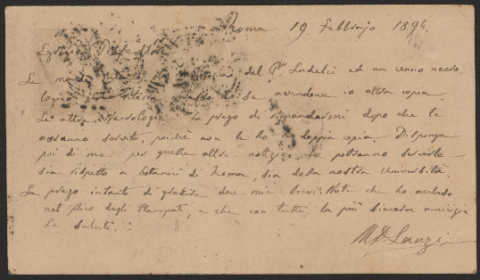 Roma 19 Febbrajo 1894.
Egregio
La del P. Ladelci ed un cenno necro
logico avendone io altra copia.
Le altre Necrologie la prego di rimandarmi dopo che le
avranno servito, poiché non le ho in doppia copia. Disponga
poi di me per quelle altre notizie che potranno servirle
sia rispetto a botanici di Roma, sia della nostra Università.
La prego intanto di gradire due mie brevi Note che ho accluso
nel plico degli stampati, e che con tutta la più sincera amicizia
La saluti.
M. D. Lanzi